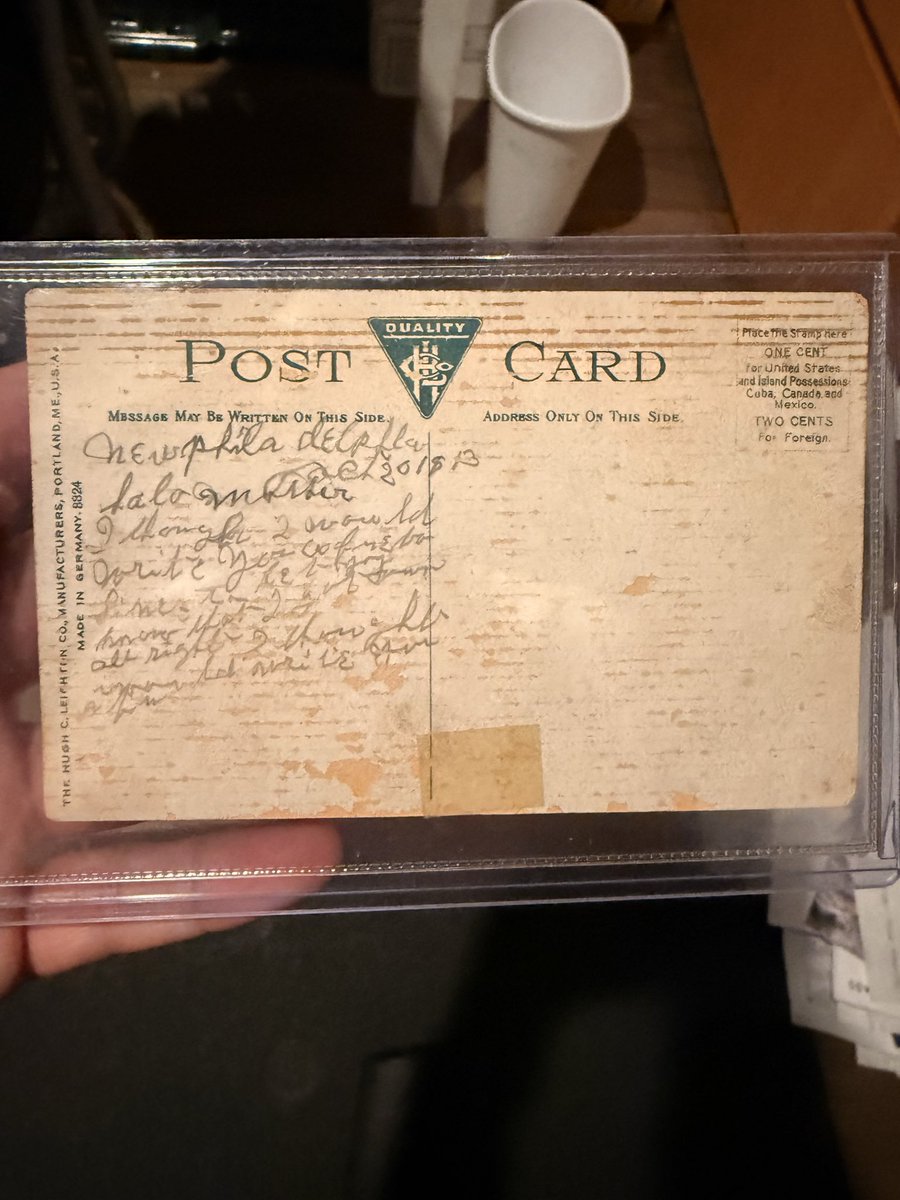 QUALITY
POST CARD
MESSAGE MAY BE WRITTEN ON THIS SIDE.
ADDRESS ONLY ON THIS SIDE.
Place The Stamp here
ONE CENT
for United States
and Island Possessions
Cuba, Canada and
Mexico.
TWO CENTS
For Foreign.
THE HUGH C. LEIGHTON CO., MANUFACTURERS, PORTLAND, ME., U.S.A.
MADE IN GERMANY. 8324
New phila delphia
Oct 20 1913
halo mother
I though I would
write you
line to let
know that I
all right I though
would write you
a